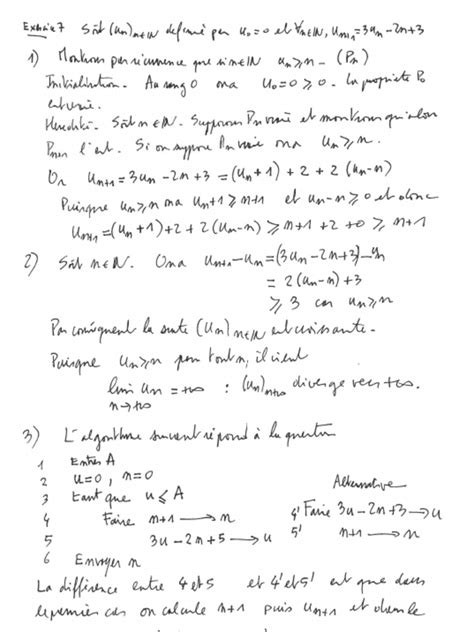 Exercice 7 Soit (un)n∈ℕ définie par u0=0 et ∀n∈ℕ, un+1=3un-2n+3
1) Montrons par récurrence que si n∈ℕ un≥n - (Pn)
Initialisation. Au rang 0 on a u0=0≥0. La propriété P0
est vraie.
Hérédité. Soit n∈ℕ. Supposons Pn vraie et montrons qu'alors
Pn+1 l'est. Si on suppose Pn vraie on a un≥n.
Or un+1=3un-2n+3=(un+1)+2+2(un-n)
Puisque un≥n on a un+1≥n+1 et un-n≥0 et donc
un+1=(un+1)+2+2(un-n)≥n+1+2+0≥n+1
2) Soit n∈ℕ. On a un+1-un=(3un-2n+3)-un
=2(un-n)+3
≥3 car un≥n
Par conséquent la suite (un)n∈ℕ est croissante-
Puisque un≥n pour tout n, il vient
lim un=+∞ : (un)n∈ℕ diverge vers +∞.
n→+∞
3) L'algorithme suivant répond à la question
1 Entrer A
2 u=0, n=0
3 tant que u≤A Alternative
4 Faire n+1→n 4' Faire 3u-2n+3→u
5 3u-2n+5→u 5' n+1→n
6 Envoyer n
La différence entre 4 et 5 et 4' et 5' est que dans
le premier cas on calcule n+1 puis un+1 et dans le